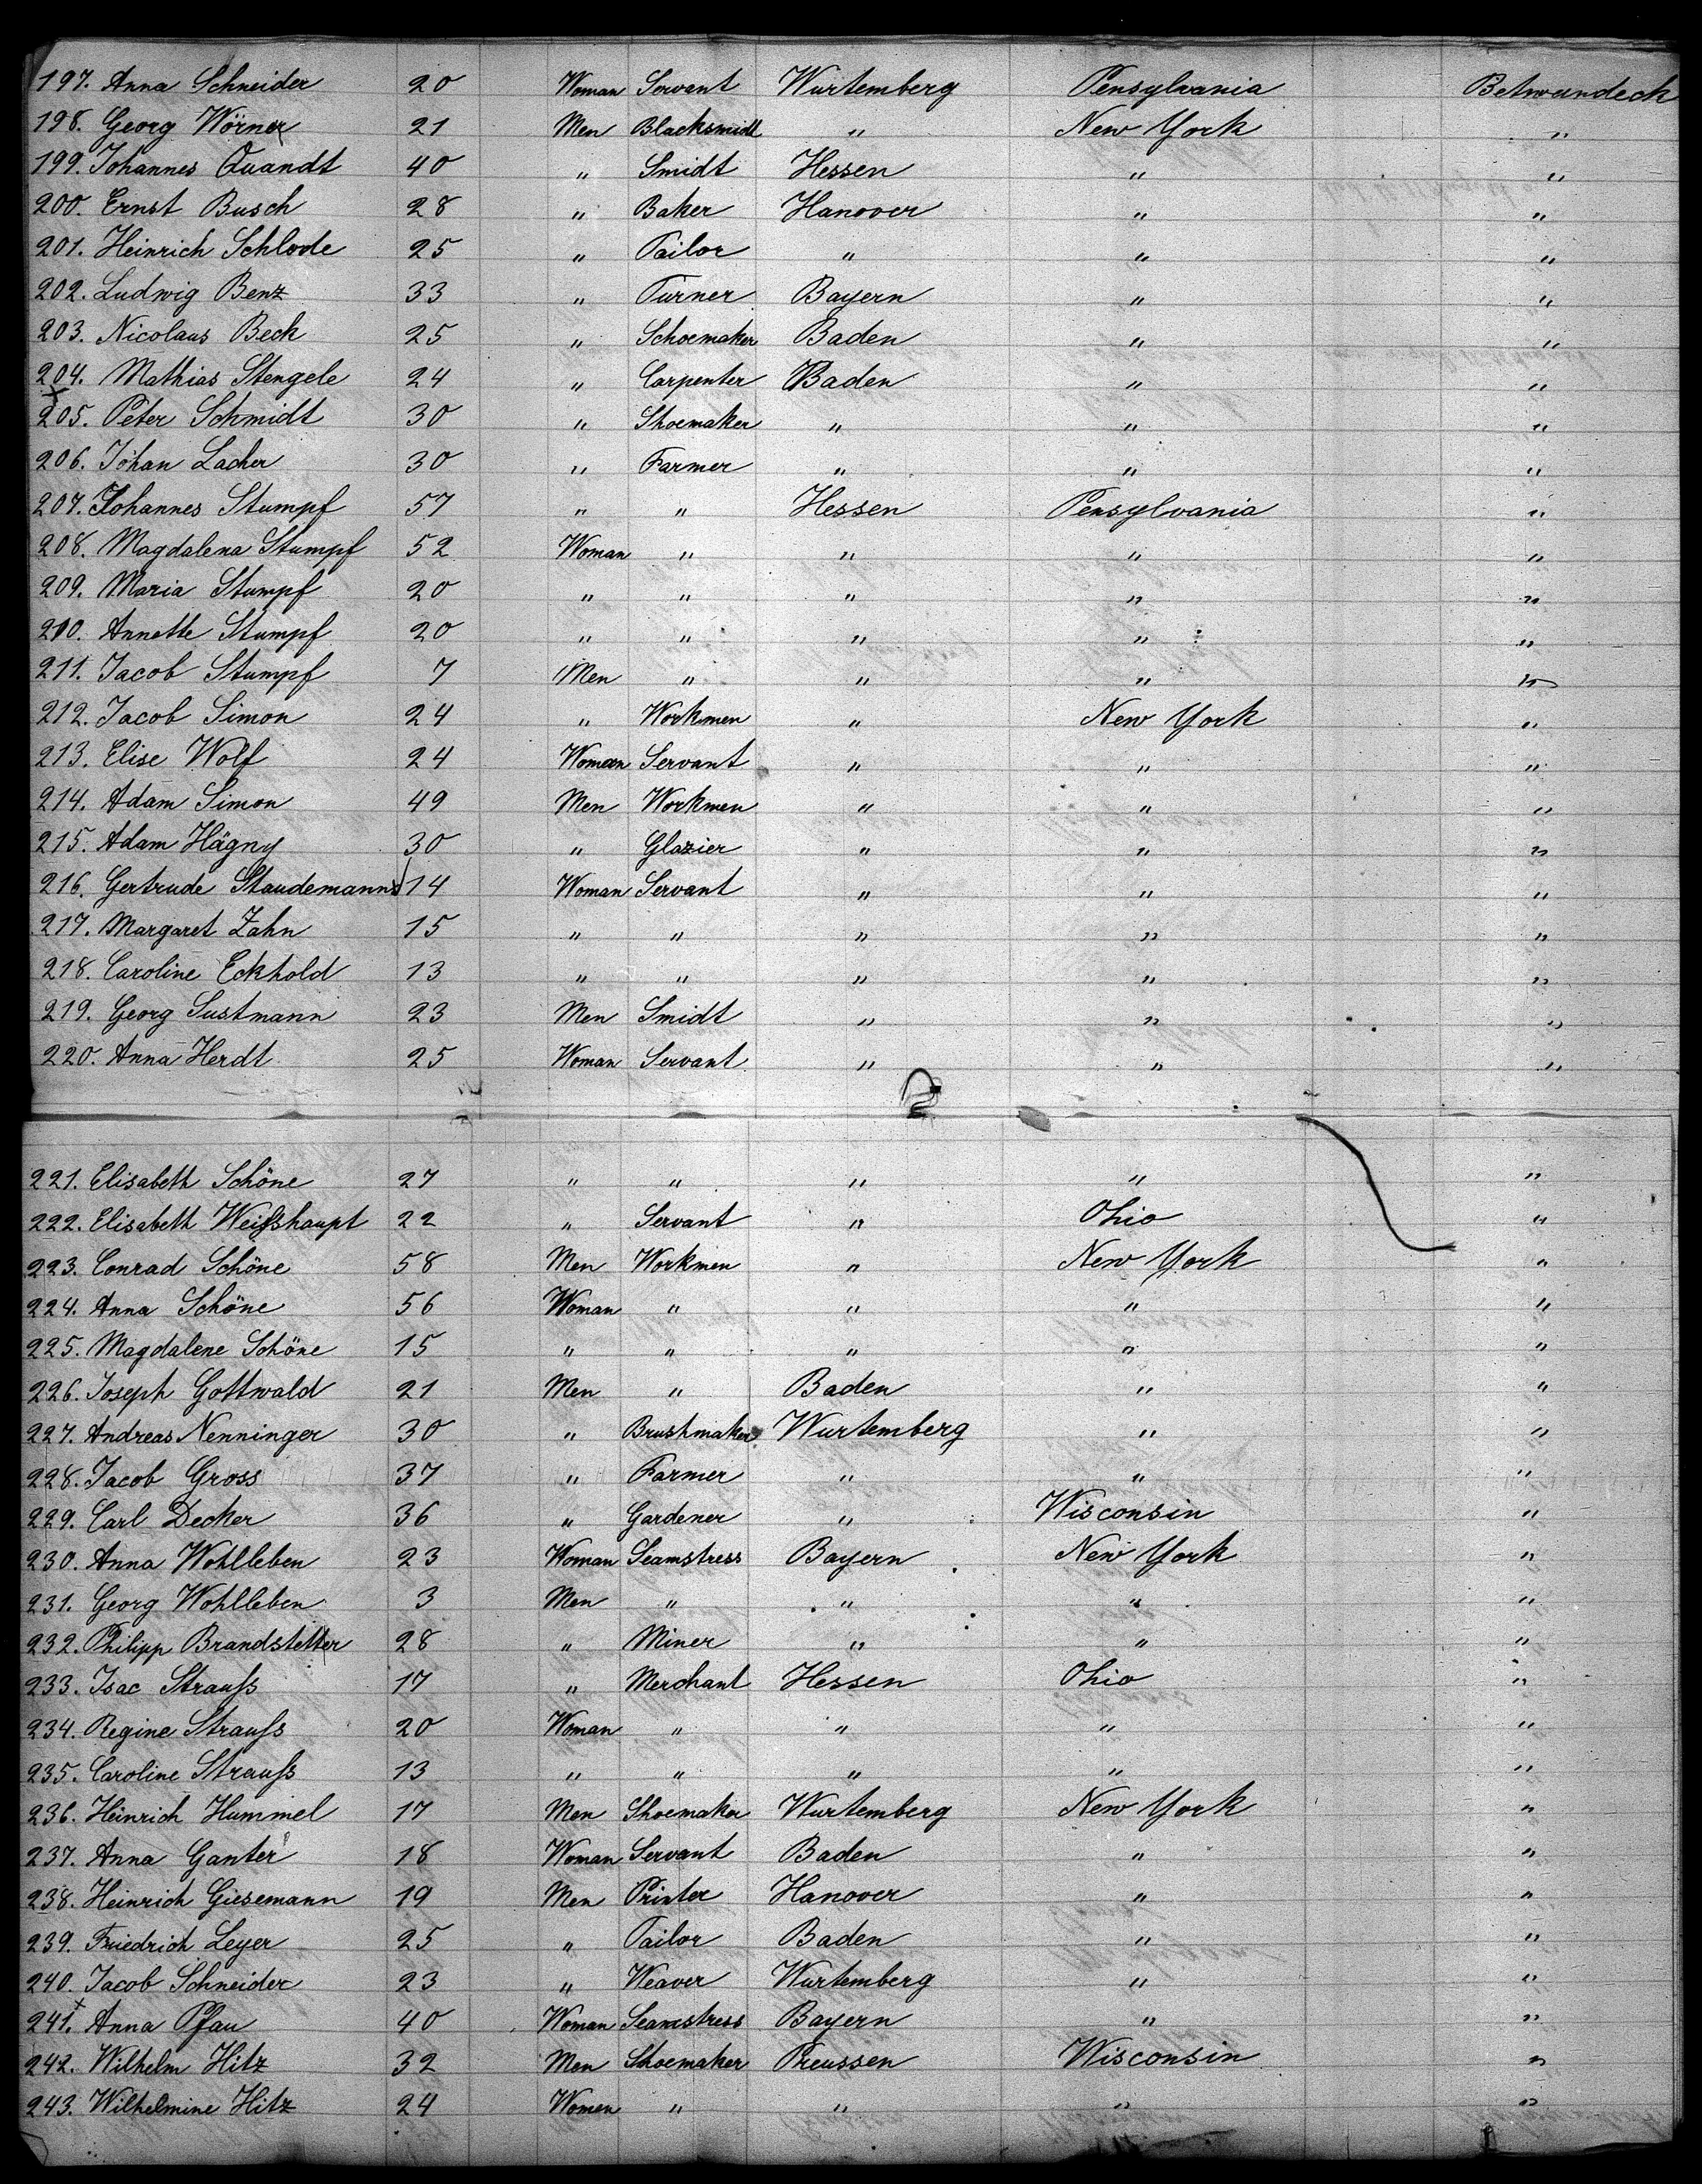 197. Anna Schneider 20 Woman Servant Wurtemberg Pensylvania Betweendeck
198. Georg Wörner 21 Men Blacksmidt " New York "
199. Johannes Quandt 40 " Smidt Hessen " "
200. Ernst Busch 28 " Baker Hanover " "
201. Heinrich Schlode 25 " Tailor " " "
202. Ludwig Benz 33 " Turner Bayern " "
203. Nicolaus Beck 25 " Schoemaker Baden " "
204. Mathias Stengele 24 " Carpenter Baden " "
205. Peter Schmidt 30 " Shoemaker " " "
206. Johan Lacher 30 " Farmer " " "
207. Johannes Stumpf 57 " " Hessen Pensylvania "
208. Magdalena Stumpf 52 Woman " " " "
209. Maria Stumpf 20 " " " " "
210. Annette Stumpf 20 " " " " "
211. Jacob Stumpf 7 Men " " " "
212. Jacob Simon 24 " Workmen " New York "
213. Elise Wolf 24 Woman Servant " " "
214. Adam Simon 49 Men Workmen " " "
215. Adam Hägny 30 " Glazier " " "
216. Gertrude Staudemann 14 Woman Servant " " "
217. Margaret Zahn 15 " " " " "
218. Caroline Eckhold 13 " " " " "
219. Georg Sustmann 23 Men Smidt " " "
220. Anna Herdt 25 Woman Servant " " "
221. Elisabeth Schöne 27 " " " " "
222. Elisabeth Weißshaupt 22 " Servant " Ohio "
223. Conrad Schöne 58 Men Workmen " New York "
224. Anna Schöne 56 Woman " " " "
225. Magdalene Schöne 15 " " " " "
226. Joseph Gottwald 21 Men " Baden " "
227. Andreas Nenninger 30 " Brushmaker Wurtemberg " "
228. Jacob Gross 37 " Farmer " " "
229. Carl Decker 36 " Gardener " Wisconsin "
230. Anna Wohlleben 23 Woman Seamstress Bayern New York "
231. Georg Wohlleben 3 Men " " " "
232. Philipp Brandstetter 28 " Miner " " "
233. Isac Strauß 17 " Merchant Hessen Ohio "
234. Regine Strauß 20 Woman " " " "
235. Caroline Strauß 13 " " " " "
236. Heinrich Hummel 17 Men Shoemaker Wurtemberg New York "
237. Anna Ganter 18 Woman Servant Baden " "
238. Heinrich Giesemann 19 Men Printer Hanover " "
239. Friedrich Leyer 25 " Tailor Baden " "
240. Jacob Schneider 23 " Weaver Wurtemberg " "
241. Anna Pfau 40 Woman Seamstress Bayern " "
242. Wilhelm Hitz 32 Men Shoemaker Preussen Wisconsin "
243. Wilhelmine Hitz 24 Women " " " "